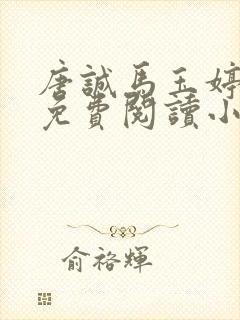 唐誠馬玉婷
免費閱讀小
俞裕輝